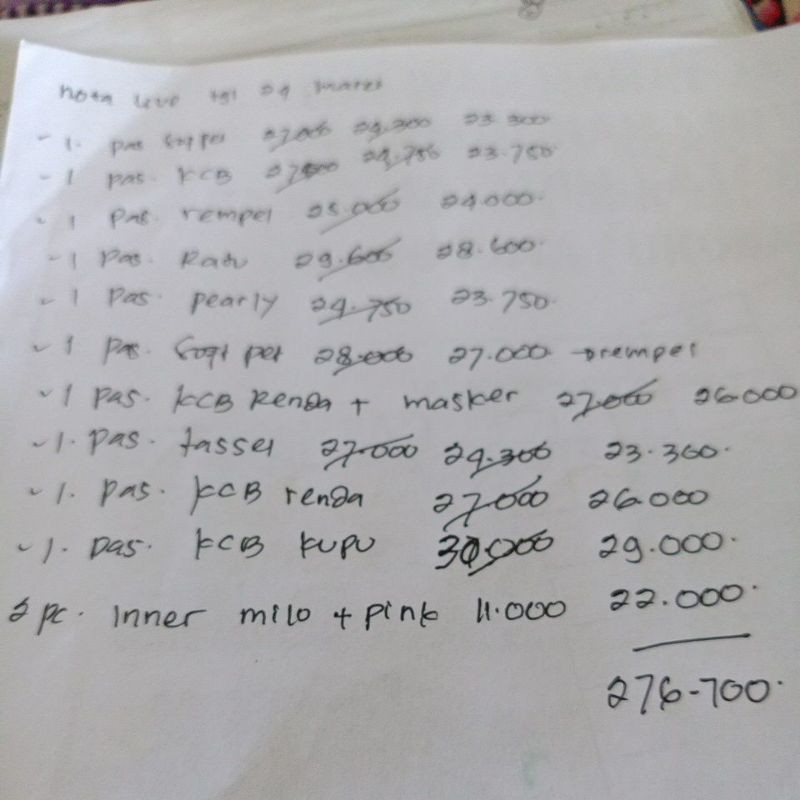 nota live tgl 24 maret
- 1. pas soft pet 27.000 24.300 23.300
- 1 pas. KCB 27.000 24.750 23.750
- 1 pas. rempel 25.000 24.000
- 1 pas. Ratu 29.600 28.600
- 1 pas. pearly 24.750 23.750
- 1 pas. soft pet 28.000 27.000 → rempel
- 1 pas. KCB Renda + masker 27.000 26.000
- 1. pas. tassel 27.000 24.300 23.300
- 1. pas. KCB renda 27.000 26.000
- 1. pas. KCB kupu 30.000 29.000
2 pc. Inner milo + pink 11.000 22.000
276.700